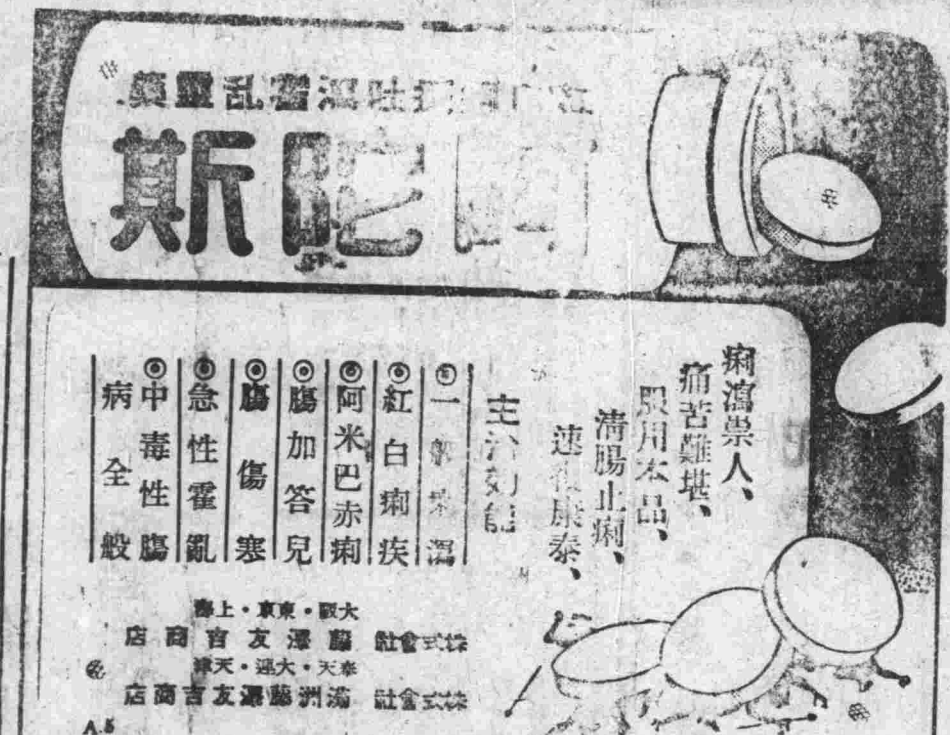 吐瀉霍乱靈藥
斯
痢瀉祟人、
痛苦難堪、
服用本品、
清腸止痢、
速得康泰、
主治効能
◎一般瀉
◎紅白痢疾
◎阿米巴赤痢
◎腸加答兒
◎腸傷寒
◎急性霍亂
◎中毒性腸
病全般
大阪・東京・上海
株式會社 藤澤友吉商店
奉天・大連・天津
株式會社 滿洲藤澤友吉商店